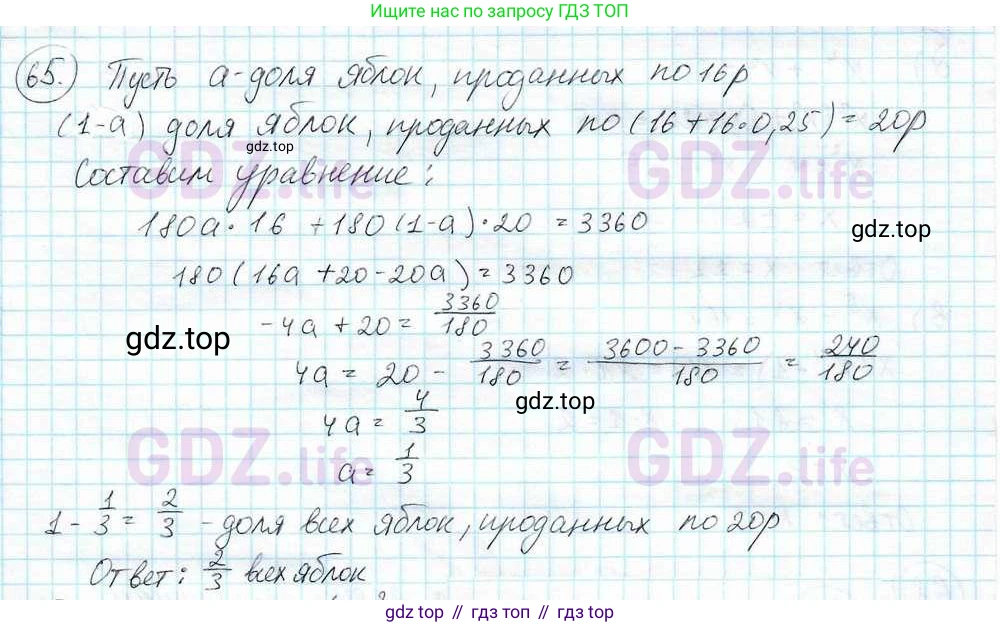 Ищите нас по запросу ГДЗ ТОП
65. Пусть а-доля яблок, проданных по 16р
(1-а) доля яблок, проданных по (16+16·0,25)=20р
gdz.top
Составим уравнение:
GDZ.life
GDZ.life
180а·16 +180(1-а)·20 = 3360
gdz.top
180(16а+20-20а)=3360
-4а+20= 3360/180
gdz.top
4а = 20 - 3360/180 = 3600-3360/180 = 240/180
gdz.top
4а= 4/3
GDZ.life
GDZ.life
а= 1/3
1- 1/3 = 2/3 - доля всех яблок, проданных по 20р
Ответ: 2/3 всех яблок
gdz top // гдз топ // gdz.top